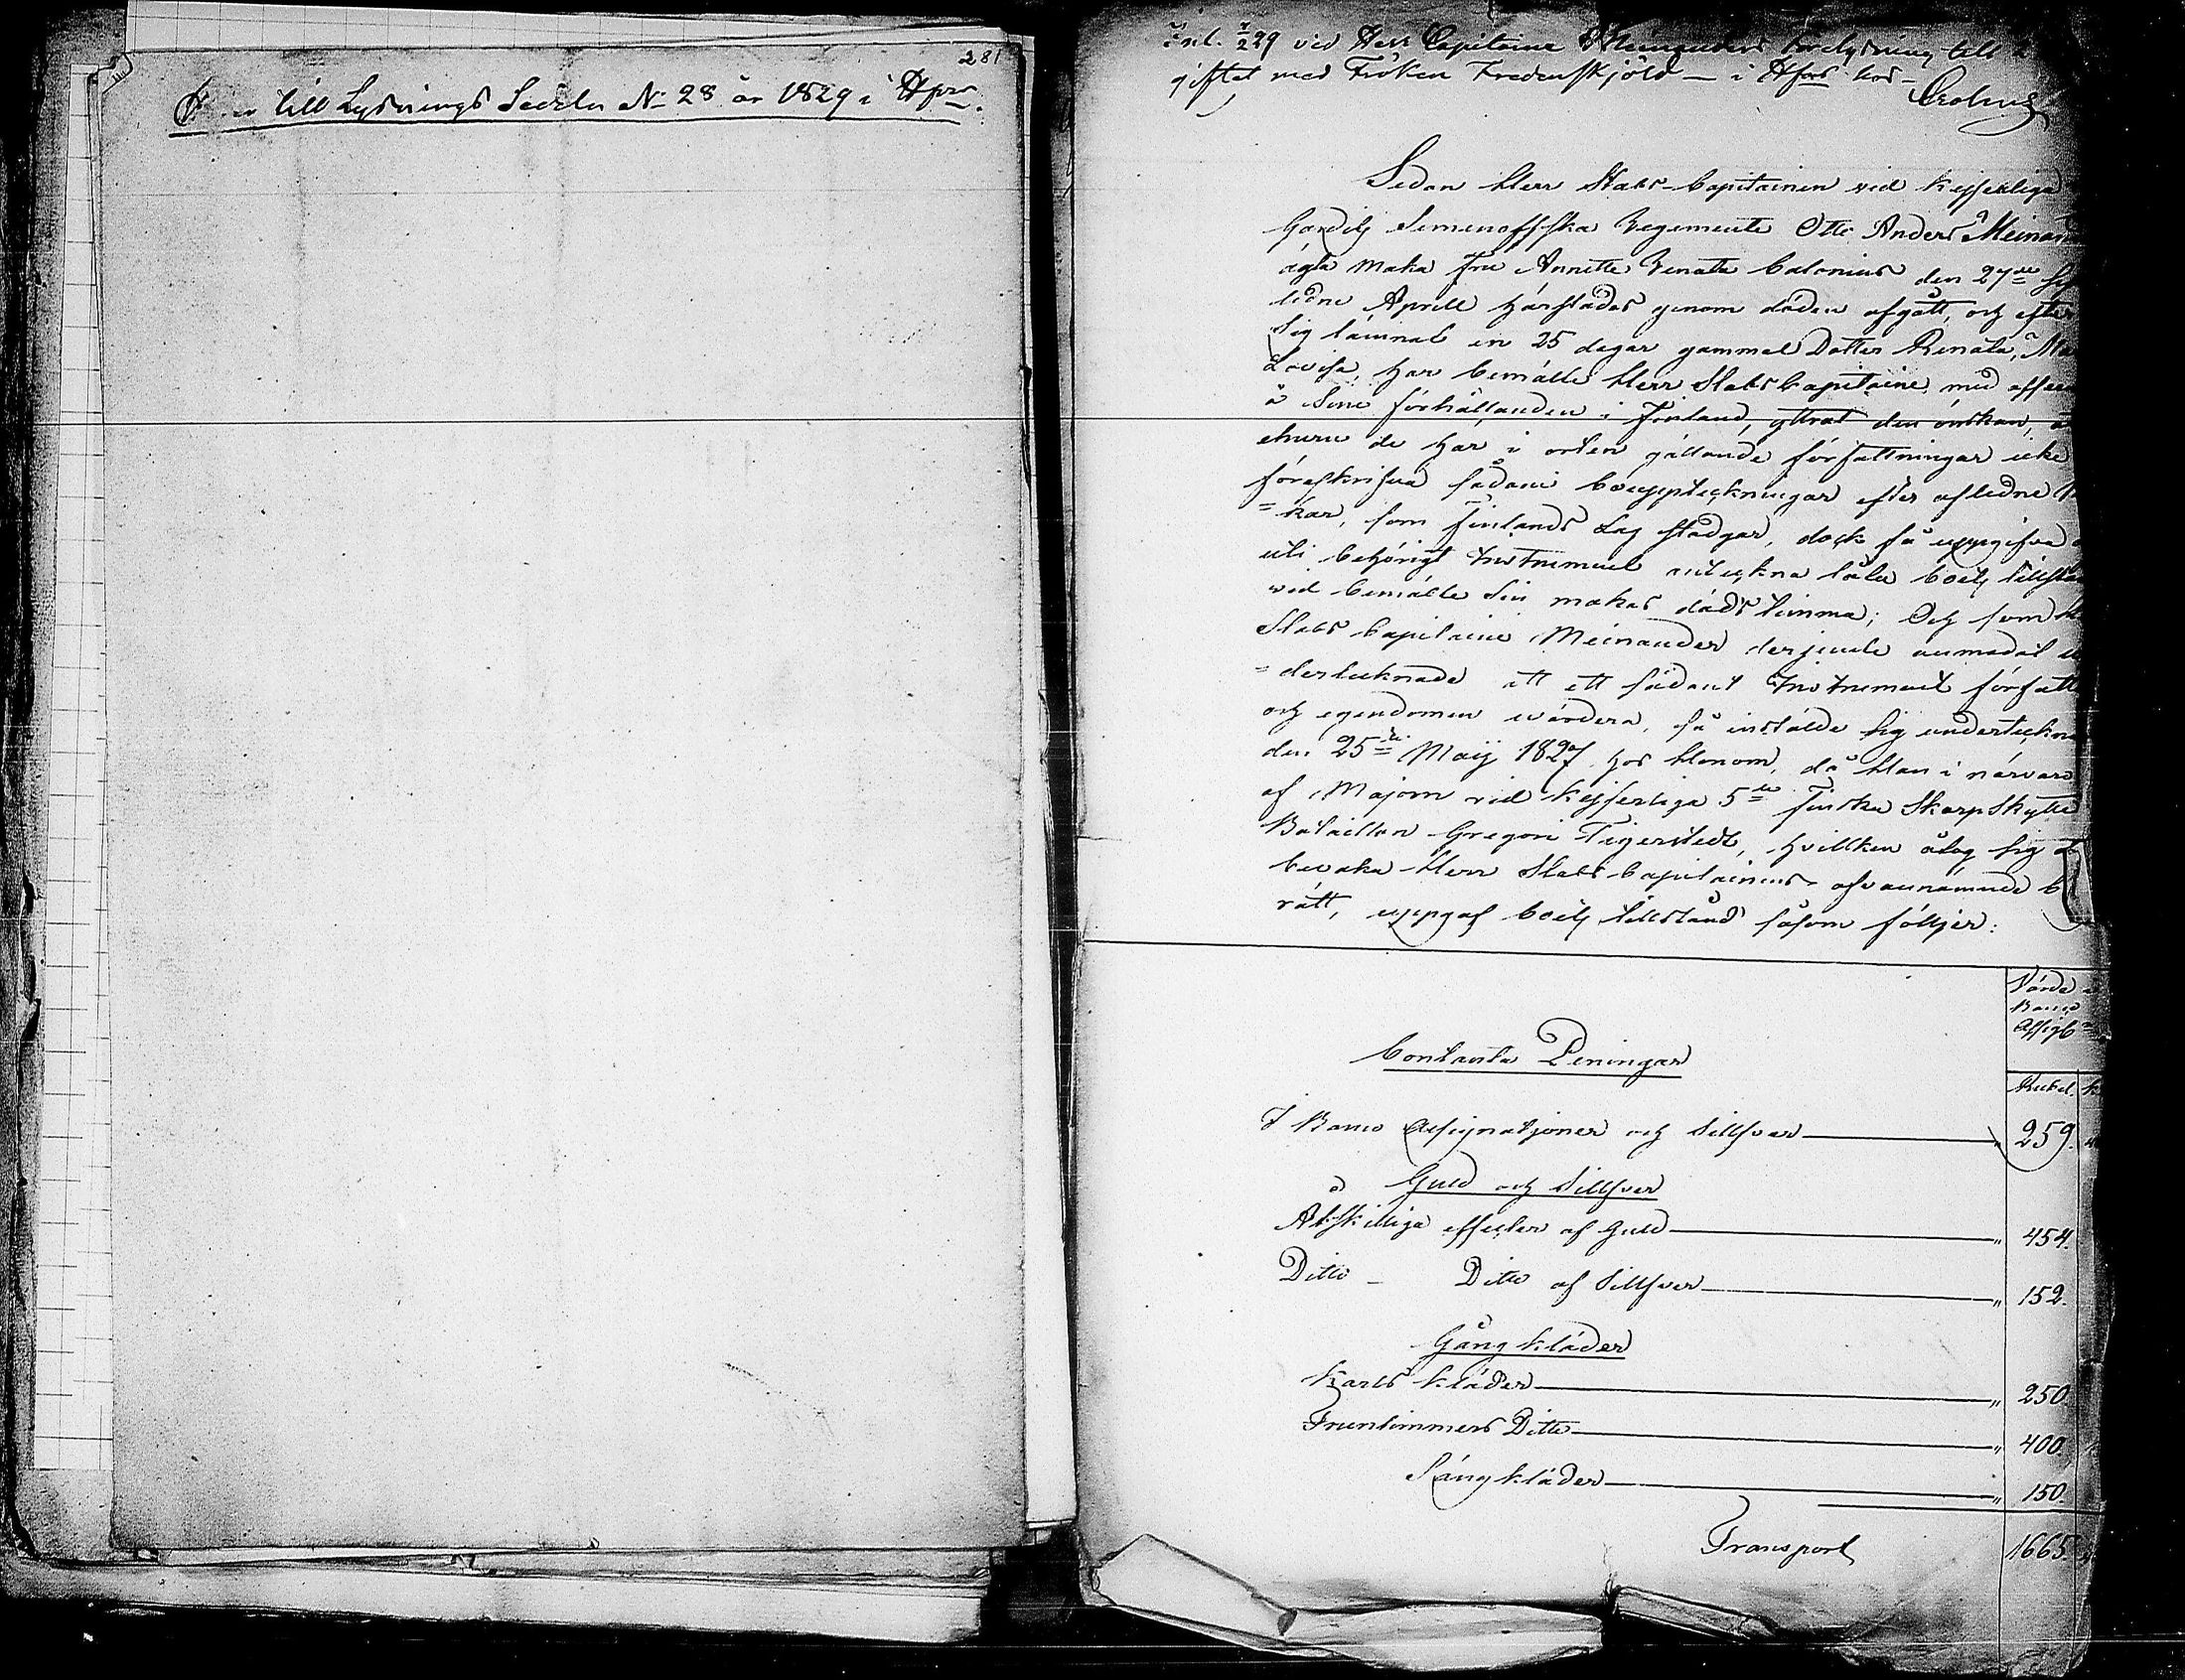 281
till Lysnings Sedeln No 28 år 1829 i Hfors.
Inl. 7/2 29 vid Herr Capitaine Meinanders trolysning till 2
giftet med Fröken Fredenskjöld — i Hfors hos —
Sedan Herr Stabs-Capitainen vid Kejserliga
Gardets Simenoffska Regemente Otto Anders Meinan
ägta maka Fru Annette Renata Calonius den 27de
ledne Aprill härstädes genom döden afgått, och efter
sig lämnat en 25 dagar gammal Dotter Renata, Ma
Lovisa, har bemälte Herr Stabs Capitaine med afse
å sine förhållanden i Finland, yttrat den önskan, a
ehuru de här i orten gällande författningar icke
föreskrifva sådane bouppteckningar efter afledne
=kar, som Finlands Lag stadgar, dock få uppgifva o
uti behörigt Instrument anteckna låta boets tillstån
ved bemälte sin makas dödstimma; Och som He
Stabs Capitaine Meinander derjemte anmodat u
=dertecknade att ett sådant Instrument författ
och egendomen värdera, så instälde sig underteckna
den 25de Maij 1827 hos Honom, då Han i närvaro
af Majorn vid Kejserliga 5te Finska Skarpskytte
Bataillon Gregori Tigerstedt, hvilken åtog sig a
bevaka Herr Stabs-Capitainens ofvannämnde b
rätt, uppgaf boets tillstånd såsom följer:
Värde i
Banco
Assigb
Rubel. k
Contanta Peningar
I Banco Assignatjoner och Sillfver " 259.
Guld och Sillfver
Åtskilliga effecter af Guld " 454.
Ditto — Ditto af Sillfver " 152.
Gång kläder
Karls kläder " 250
Fruntimmers Ditto " 400.
Säng kläder " 150.
Transport 1665.